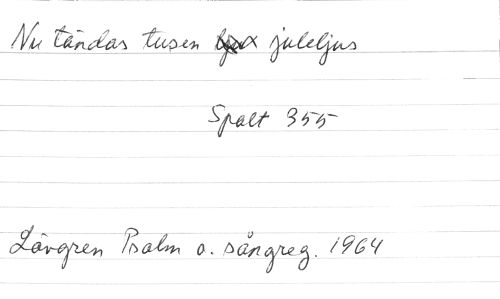 Nu tändas tusen juleljus
Spalt 355
Lövgren Psalm o. sångreg. 1964